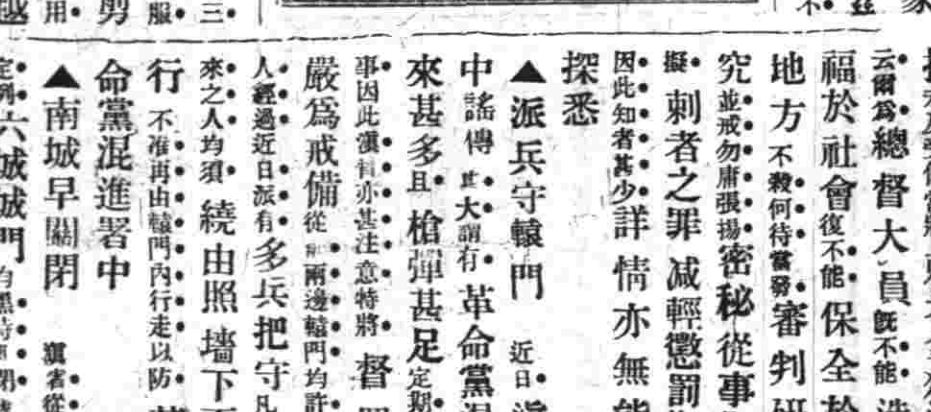 云爾爲總督大員既不能
福於社會復不能保全於
地方不殺何待當發審判研
究並戒勿庸張揚密秘從事
擬刺者之罪减輕懲罰
因此知者甚少詳情亦無能
探悉
▲派兵守轅門 近日
中謠傳甚大謂有革命黨
來甚多且槍彈甚足定期
事因此滇督亦甚注意特將督
嚴爲戒備從前兩邊轅門均許
人經過近日派有多兵把守凡
來之人均須繞由照墻下
行不准再由轅門內行走以防
命黨混進署中
▲南城早關閉 滇省從
定列六城城門均